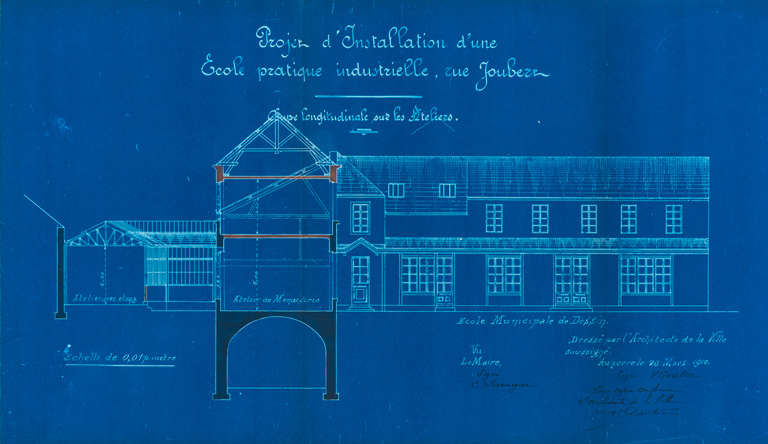 Projet d'Installation d'une
Ecole pratique industrielle, rue Joubert
Coupe longitudinale sur les Ateliers.
Atelier de Menuiserie
Ecole Municipale de Dessin.
Echelle de 0,01 p. mètre
Vu:
Le Maire,
Signé
Dressé par l'Architecte de la Ville
soussigné.
Auxerre le 20 Mars 1910.
Signé
Pour copie conforme
L'Architecte de la Ville